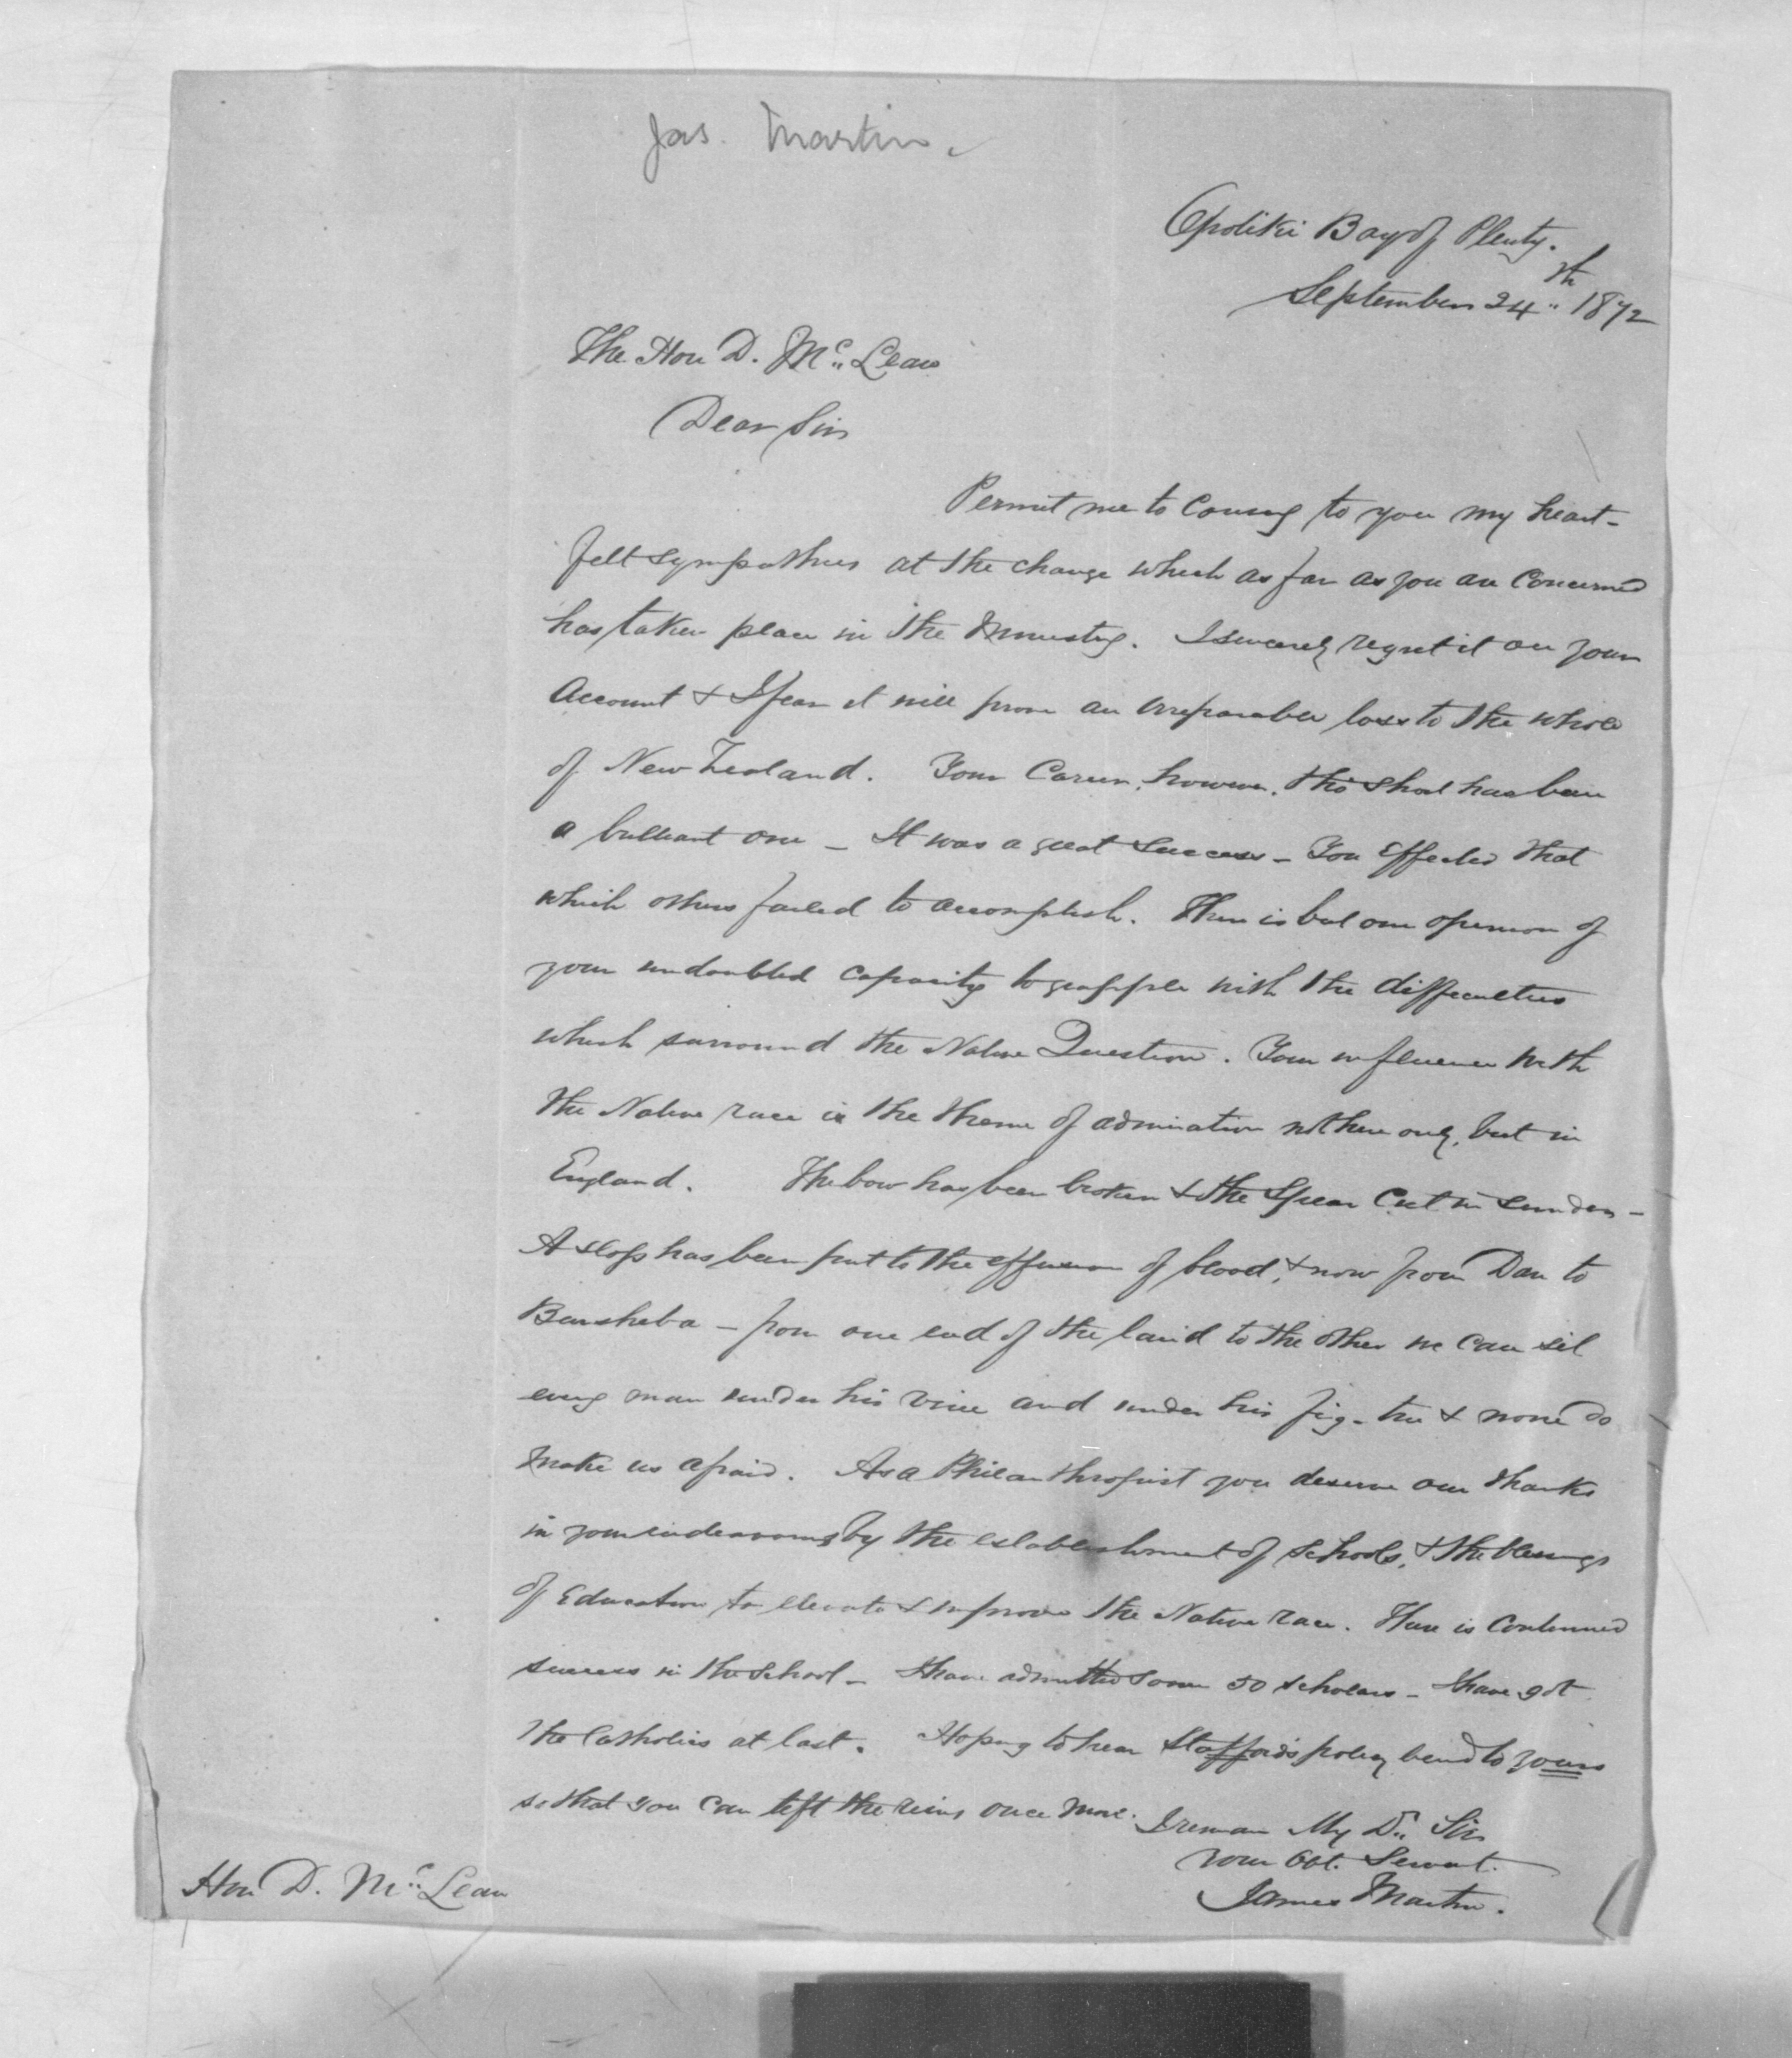 Jas. Martin.
Opotiki Bay of Plenty.
September 24th 1872
The Hon D. McLean
Dear Sir
Permit me to convey to you my heart-
felt sympathies at the change which as far as you are concerned
has taken place in the Ministry. I sincerely regret it on your
account & I fear it will prove an irreparable loss to the whole
of New Zealand. Your Career, however, tho' short has been
a brilliant one _ It was a great success _ You effected that
which others failed to accomplish. There is but one opinion of
your undoubted capacity to grapple with the difficulties
which surround the Native Question. Your influence with
the Native race is the theme of admiration not here only, but in
England. The bow has been broken & the Spear Cut in sunder _
A stop has been put to the effusion of blood, & now from Dan to
Beersheba _ from one end of the land to the other we can sit
every man under his vine and under his fig-tree & none do
make us afraid. As a Philanthropist you deserve our thanks
in your endeavours by the establishment of Schools, & the blessings
of Education to elevate & improve the Native race. There is Continued
success in the School _ I have admitted some 50 scholars _ I have got
the Catholics at last. Hoping to hear Stafford's policy bend to yours
so that you can left the reins once more. I remain My Dr Sir
your Obt. Servant.
James Martin.
Hon D. McLean